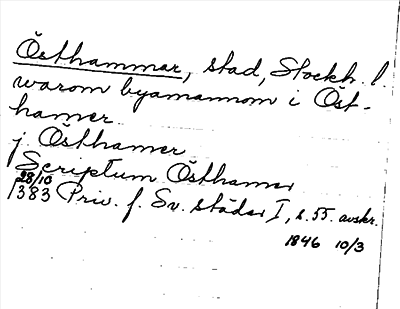 Östhammar, stad, Stockh. l.
warom byamannom i Öst-
hamer
j Östhamer
Scriptum Östhamer
28/10
1383 Priv. f. Sv. städer I, s. 55. avskr.
1846 10/3